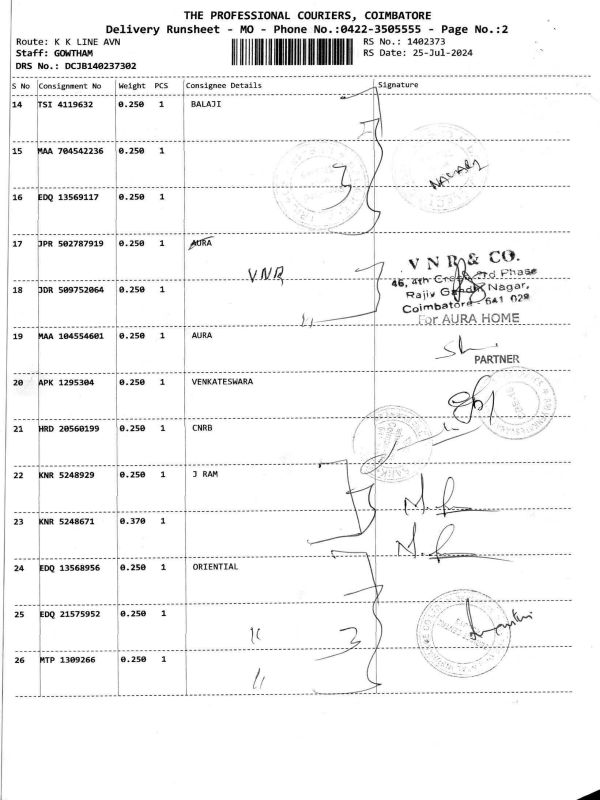 THE PROFESSIONAL COURIERS, COIMBATORE
Delivery Runsheet - MO - Phone No.:0422-3505555 - Page No.:2
Route: K K LINE AVN RS No.: 1402373
Staff: GOWTHAM RS Date: 25-Jul-2024
DRS No.: DCJB140237302
S No Consignment No Weight PCS Consignee Details Signature
14 TSI 4119632 0.250 1 BALAJI
15 MAA 704542236 0.250 1
16 EDQ 13569117 0.250 1
17 JPR 502787919 0.250 1 AURA
VNR
V N R & CO.
46, 4th Cross 3rd Phase
18 JDR 509752064 0.250 1 Rajiv Gandhi Nagar,
Coimbatore - 641 029
For AURA HOME
19 MAA 104554601 0.250 1 AURA
PARTNER
20 APK 1295304 0.250 1 VENKATESWARA
21 HRD 20560199 0.250 1 CNRB
22 KNR 5248929 0.250 1 J RAM
23 KNR 5248671 0.370 1
24 EDQ 13568956 0.250 1 ORIENTIAL
25 EDQ 21575952 0.250 1
26 MTP 1309266 0.250 1